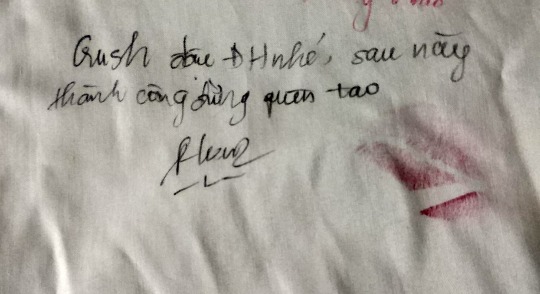 Crush đậu ĐH nhé, sau này
thành công đừng quên tao